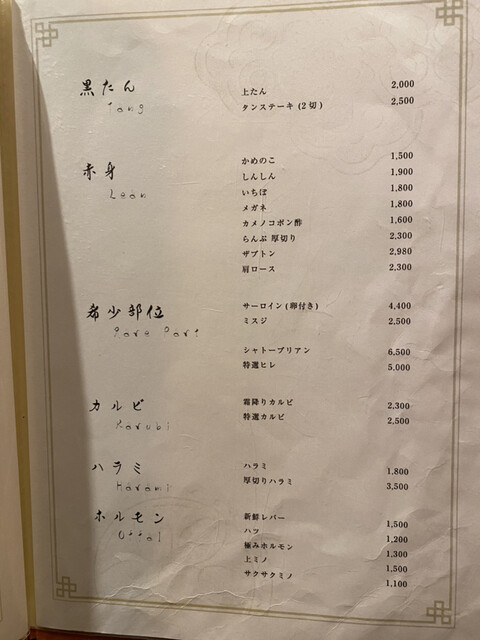 黒たん
Tong
上たん 2,000
タンステーキ (2切) 2,500
赤身
Lean
かめのこ 1,500
しんしん 1,900
いちぼ 1,800
メガネ 1,800
カメノコポン酢 1,600
らんぷ 厚切り 2,300
ザブトン 2,980
肩ロース 2,300
希少部位
Rare Part
サーロイン (卵付き) 4,400
ミスジ 2,500
シャトーブリアン 6,500
特選ヒレ 5.000
カルビ
Karubi
霜降りカルビ 2,300
特選カルビ 2,500
ハラミ
Harami
ハラミ 1,800
厚切りハラミ 3,500
ホルモン
Offal
新鮮レバー 1,500
ハツ 1,200
極みホルモン 1,300
上ミノ 1,500
サクサクミノ 1,100